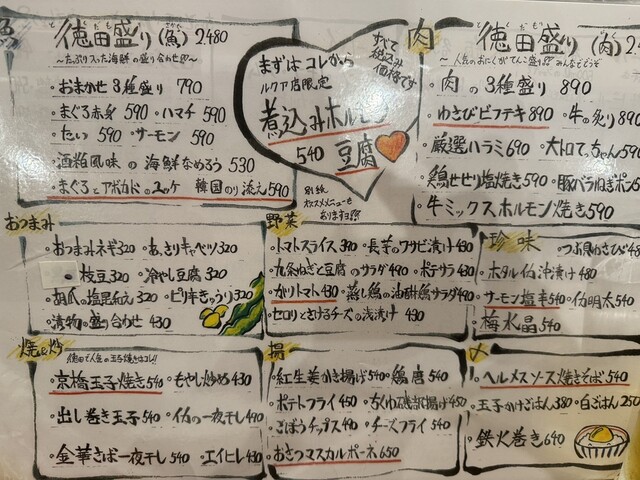 魚
徳田盛り(魚) 2.480
〜たっぷり入った海鮮の盛り合わせ即〜
・おまかせ3種盛り 790
・まぐろ赤身 590 ・ハマチ 590
・たい 590 ・サーモン 590
・酒粕風味の海鮮なめろう 530
・まぐろとアボカドのユッケ 韓国のり添え 590
まずはコレから
ルクア店限定
煮込みホルモン
540 豆腐
すべて
税込み
価格です
別紙
オススメメニューも
あります
肉
徳田盛り(肉) 2.
・肉の3種盛り 890
・わさびビフテキ 890 ・牛の炙り 890
・厳選ハラミ 690 ・大トロてっちゃん 590
・鶏せせり塩焼き 590 ・豚バラねぎポン
・牛ミックスホルモン焼き 590
おつまみ
・おつまみネギ 320 ・あっさりキャベツ 320
・枝豆 320 ・冷やし豆腐 320
・胡瓜の塩昆布和え 320 ・ピリ辛きゅうり 320
・漬物の盛り合わせ 430
野菜
・トマトスライス 390 ・長芋のワサビ漬け 430
・九条ねぎと豆腐のサラダ 490 ・ポテサラ 430
・ガリトマト 430 ・蒸し鶏の油淋鶏サラダ 490
・セロリとさけるチーズの浅漬け 430
珍味
・つぶ貝わさび 480
・ホタルイカ沖漬け 480
・サーモン塩辛 540 ・イカ明太 540
・梅水晶 540
焼&炒
徳田で人気の玉子焼きはコレ!!
・京橋玉子焼き 540 ・もやし炒め 430
・出し巻き玉子 540 ・イカの一夜干し 440
・金華さば一夜干し 540 ・エイヒレ 430
揚
・紅生姜かき揚げ 540 ・鶏唐 540
・ポテトフライ 450 ・ちくわ磯辺揚げ 450
・ごぼうチップス 490 ・チーズフライ 540
・おさつマスカルポーネ 650
〆
・ヘルメスソース焼きそば 540
・玉子かけごはん 380 ・白ごはん 250
・鉄火巻き 640